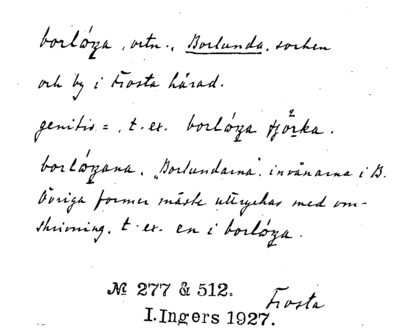 borlóŋa, ortn., Borlunda, socken
och by i Frosta härad.
genitiv =, t. ex. borlóŋa
borlóŋana, "Borlundarna", invånarna i B.
Övriga former måste uttryckas med om-
skrivning, t. ex. en i borlóŋa.
№ 277 & 512.
Frosta
I. Ingers 1927.